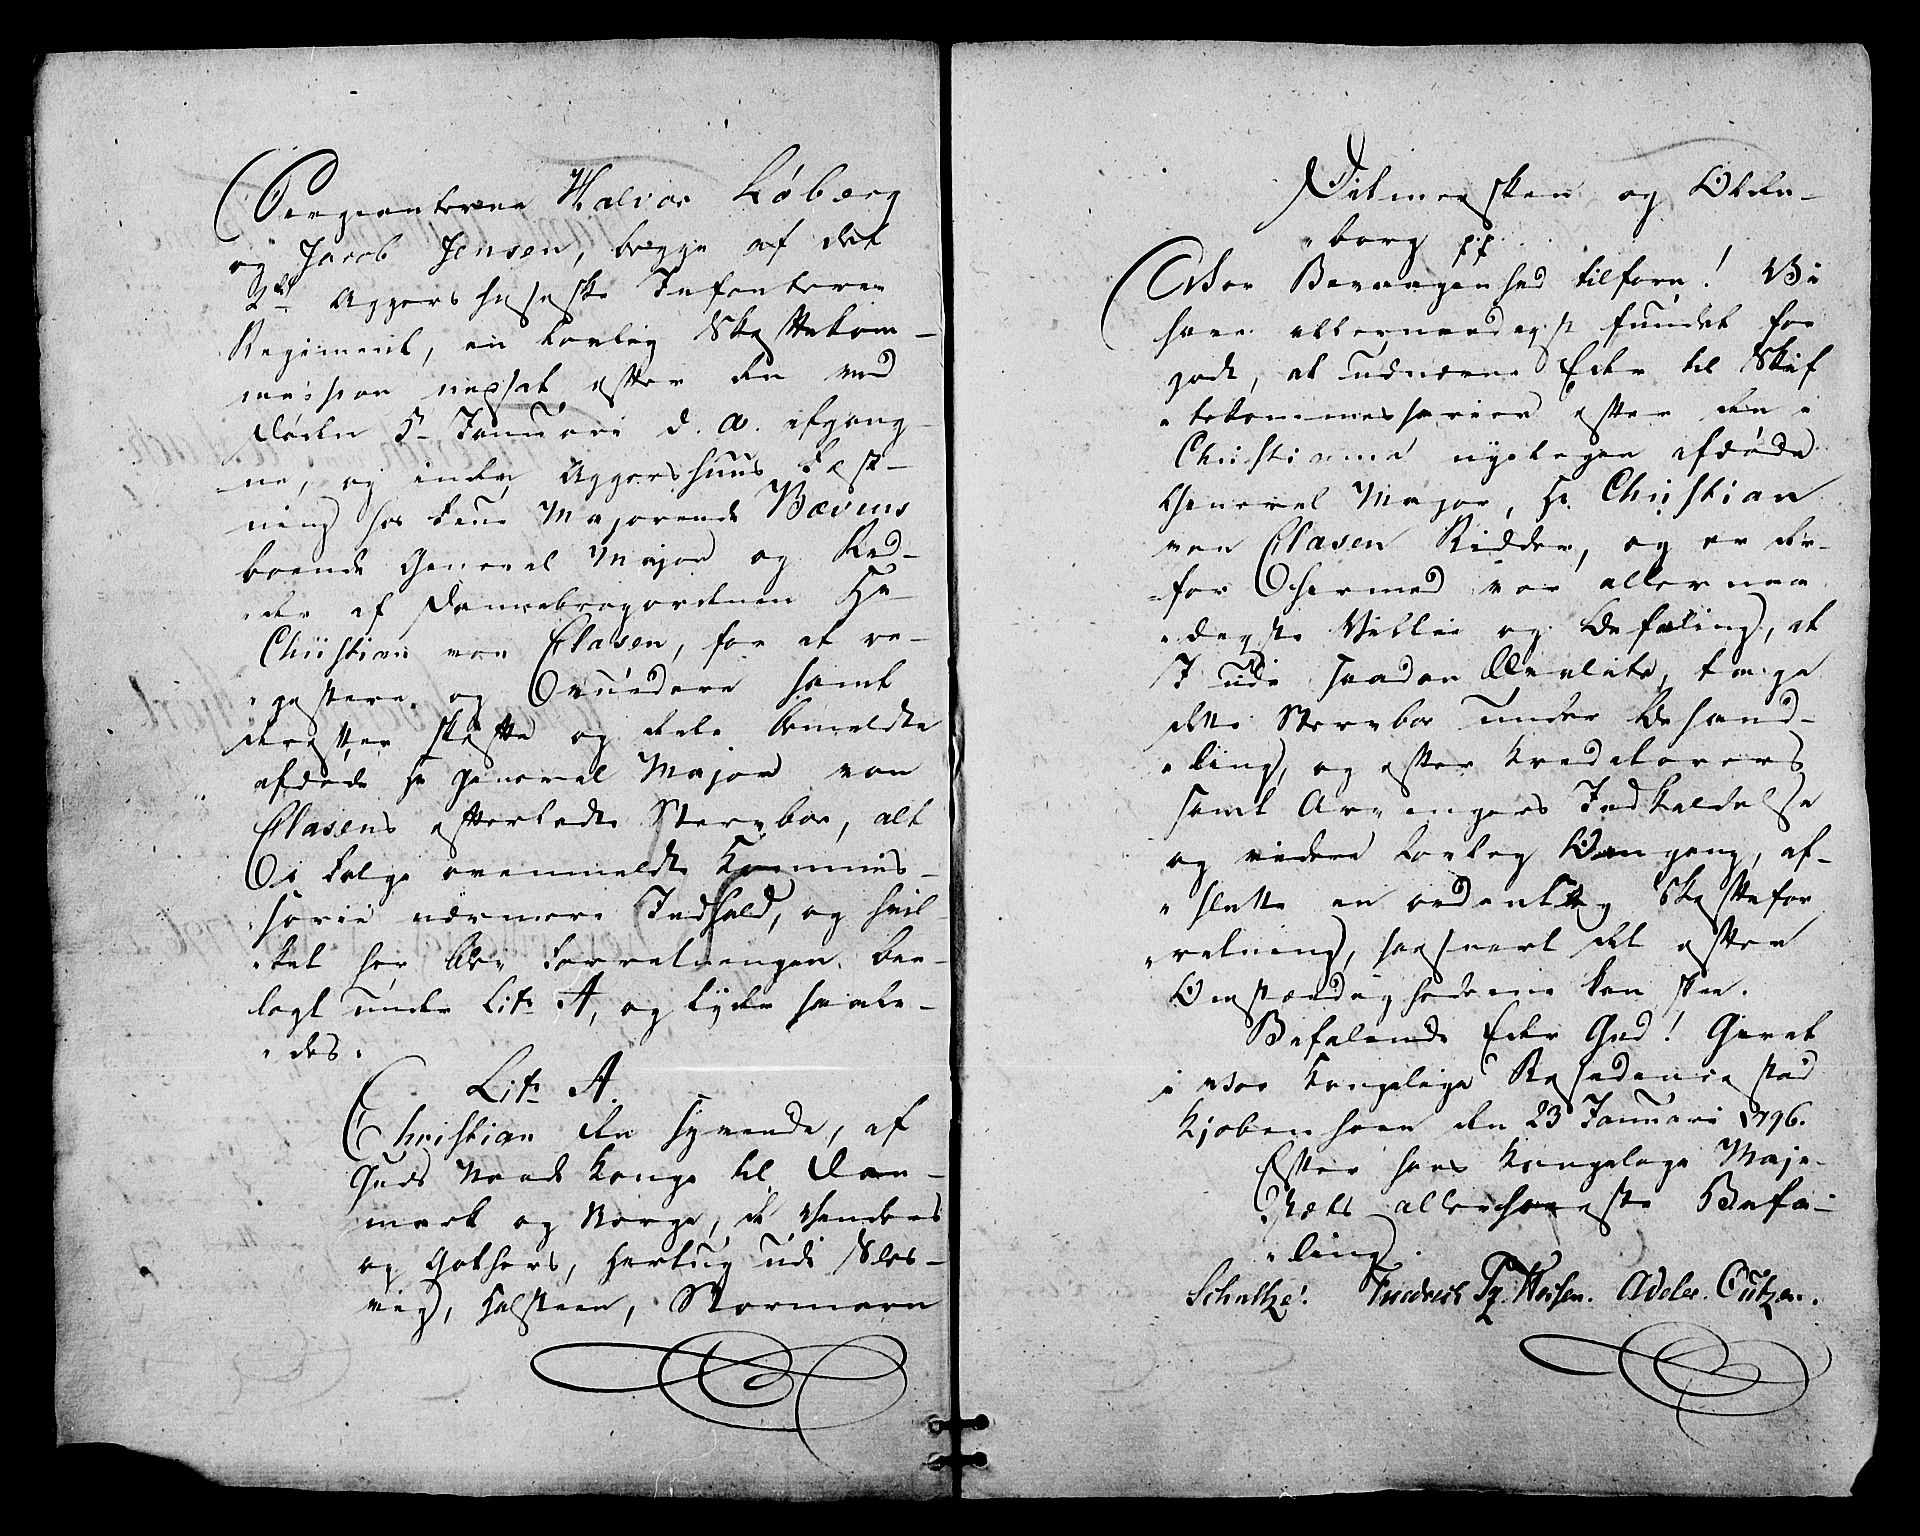 Sergianterne Halvor Löberg
og Jacob Jensen, begge af det
2det Aggershusiske Infanterie
Regiment, en lovlig Skiftekom-
mission nedsat efter den ved
Döden 5te Januari d. A. afgang-
ne, og inden Aggershuus Fæst-
ning hos Frue Majorinde Bævens
boende General Major og Rid-
der af Dannebrogordenen Hr
Christian von Clasen, for at re-
gistere, og Vurdere samt
derefter skifte og dele bemeldte
afdöde Hr General Major von
Clasens efterladte Stervboe, alt
i Fölge ovenmeldte Kommis-
sorie nærmere Indhold, og hvil-
ket her ved Forretningen bee-
lagt under Litr A, og lyder saale-
des.
Litr A.
Christian den Syvende, af
Guds Naade Konge til Dan-
mark og Norge, de Venders
og Gothers, Hertug udi Sles-
vig, Holsteen, Stormarn
Ditmersken og Olden-
borg pp.
Vor Bevaagenhed tilforn! Vi
have allernaadigst fundet for
godt, at udnævne Eder til Skif-
tekommissarier efter den i
Christiania nyeligen afdöde
General Major, Hr. Christian
von Clasen Ridder, og er der-
for hermed vor allernaa-
digste Villie og Befaling, at
I udi saadan Qvalite, tage
dette Stervboe under Behand-
ling, og efter Kreditorers
samt Arvingers Indkaldelse
og videre lovlig Omgang, af-
slutte en ordentlig Skiftefor-
retning, saasnart det efter
Omstændighederne kan skee.
Befalende Eder Gud! Givet
i vor Kongelige Residencestad
Kjöbenhavn den 23 Januari 1796.
Efter hans Kongelige Maje-
stæts allerhöieste Befa-
ling.
Schultze. Fr. Heisen. Adeler.